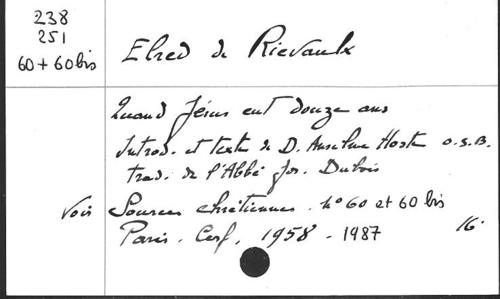 238
251
60 + 60 bis
Elred de Rievaulx
Quand Jésus eut douze ans
Introd. et texte de D. Anselme Hoste O.S.B.
trad. de l'Abbé Jos. Dubois
Voir Sources chrétiennes. n° 60 et 60 bis
Paris. Cerf, 1958 - 1987 16.